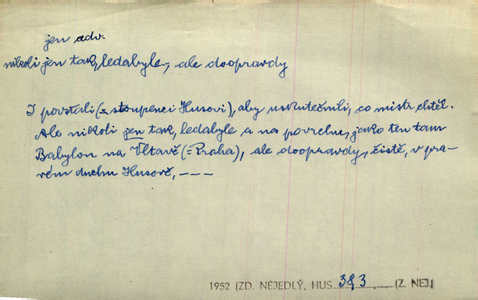 jen adv.
nikoli jen tak, ledabyle, ale doopravdy
I povstali (= stoupenci Husovi), aby uskutečnili, co mistr chtěl.
Ale nikoli jen tak, ledabyle a na povrchu, jako ten tam
Babylon na Vltavě (= Praha), ale doopravdy, čistě, v pra-
vém duchu Husově, ---
1952 (ZD. NEJEDLÝ, HUS 383, (Z. NEJ)